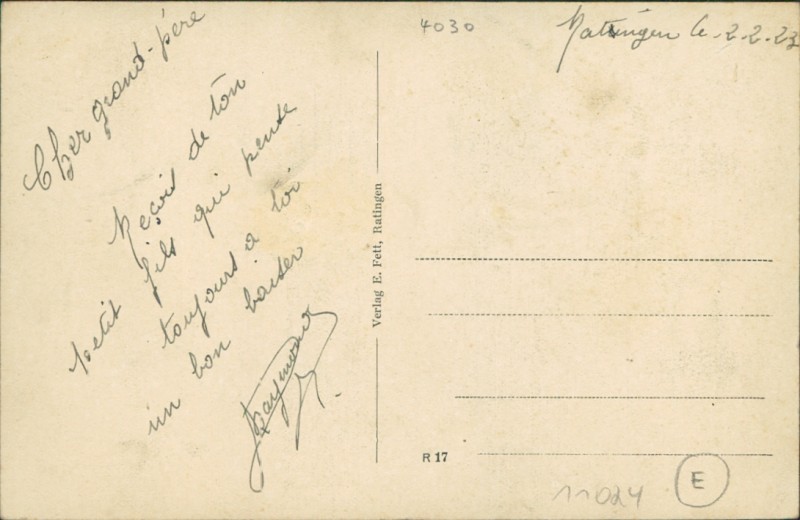 4030
Ratingen le 2.2.23
Cher grand-père
Reçois de ton
petit fils qui pense
toujours a toi
un bon baiser
Raymond
Verlag E. Fett, Ratingen
R 17
11024
E